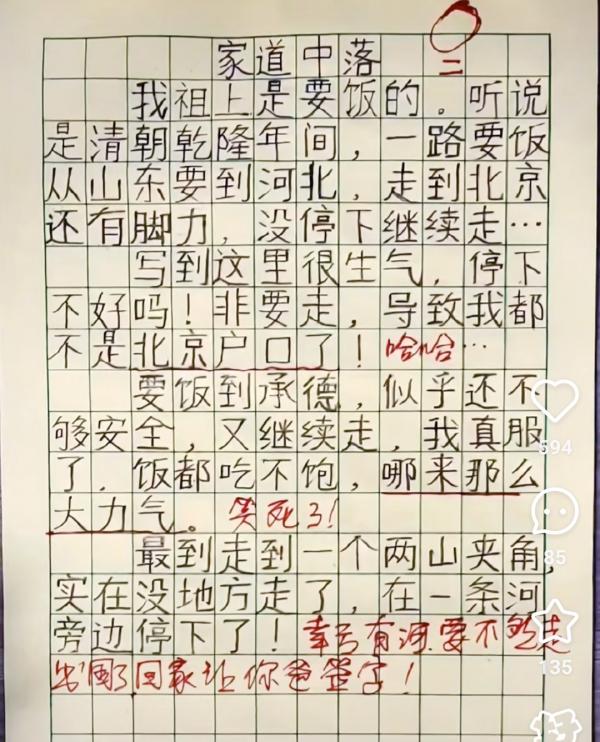 家道中落
二
我祖上是要饭的。听说
是清朝乾隆年间，一路要饭
从山东要到河北，走到北京
还有脚力，没停下继续走…
写到这里很生气，停下
不好吗！非要走，导致我都
不是北京户口了！哈哈…
要饭到承德，似乎还不
够安全，又继续走，我真服
了，饭都吃不饱，哪来那么
大力气。笑死了！
最到走到一个两山夹角，
实在没地方走了，在一条河
旁边停下了！幸亏有河要不然走
出国了回家让你爸签字！
594
85
135